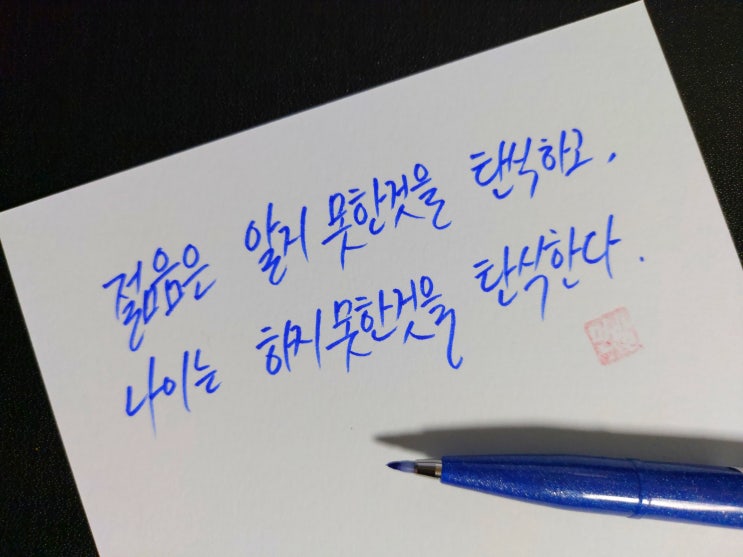 젊음은 알지 못한것을 탄식하고,
나이는 하지못한것을 탄식한다.